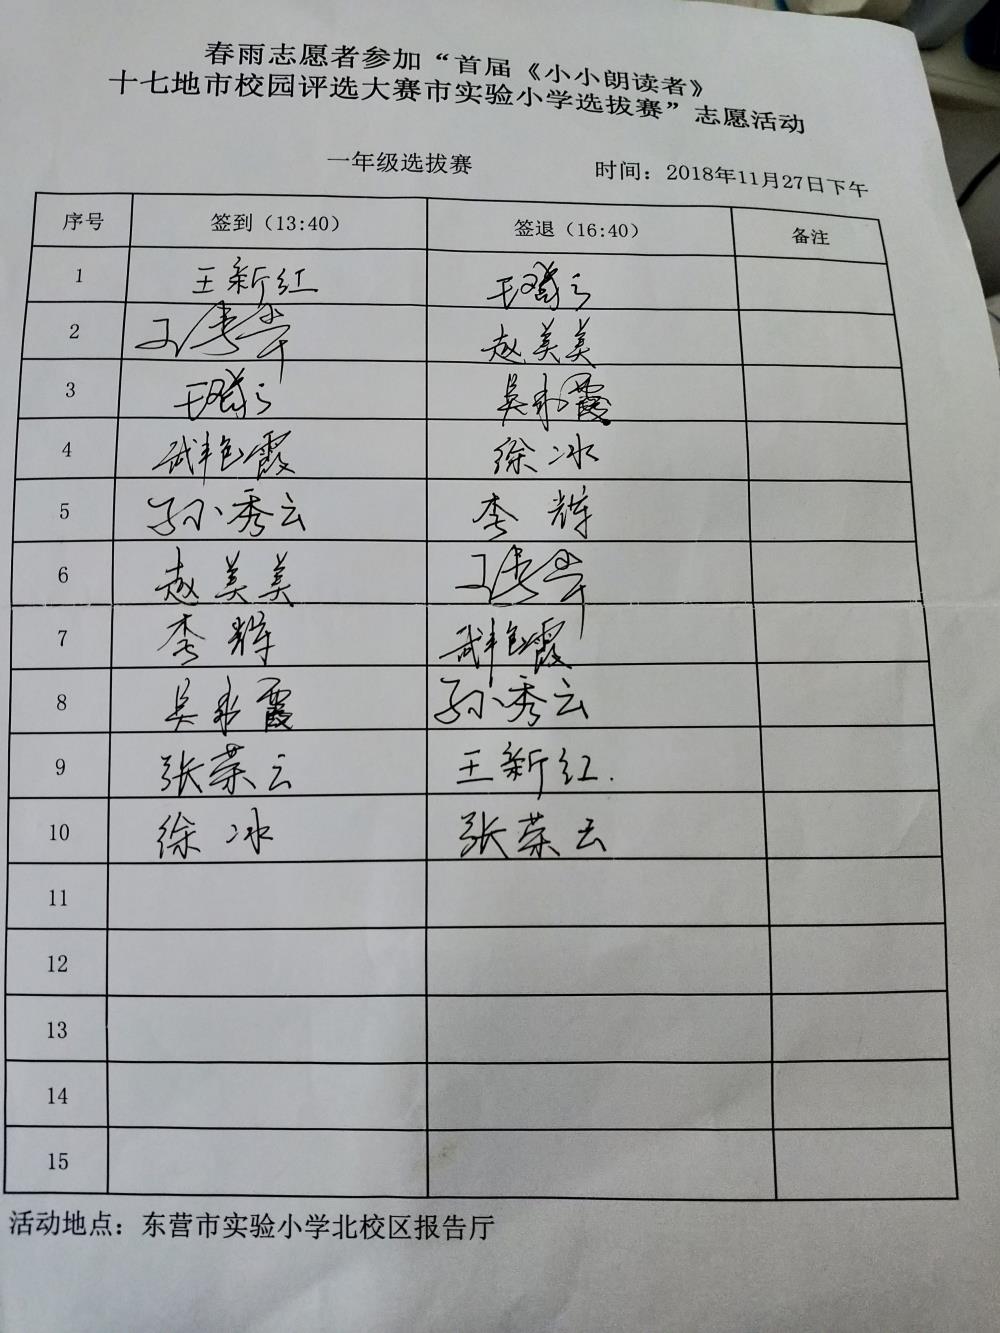 春雨志愿者参加“首届《小小朗读者》
十七地市校园评选大赛市实验小学选拔赛”志愿活动
一年级选拔赛 时间：2018年11月27日下午
序号 签到（13:40） 签退（16:40） 备注
1 王新红
2 赵美美
3 吴永霞
4 武艳霞 徐冰
5 孙秀云 李辉
6 赵美美
7 李辉 武艳霞
8 吴永霞 孙秀云
9 张荣云 王新红.
10 徐冰 张荣云
11
12
13
14
15
活动地点：东营市实验小学北校区报告厅